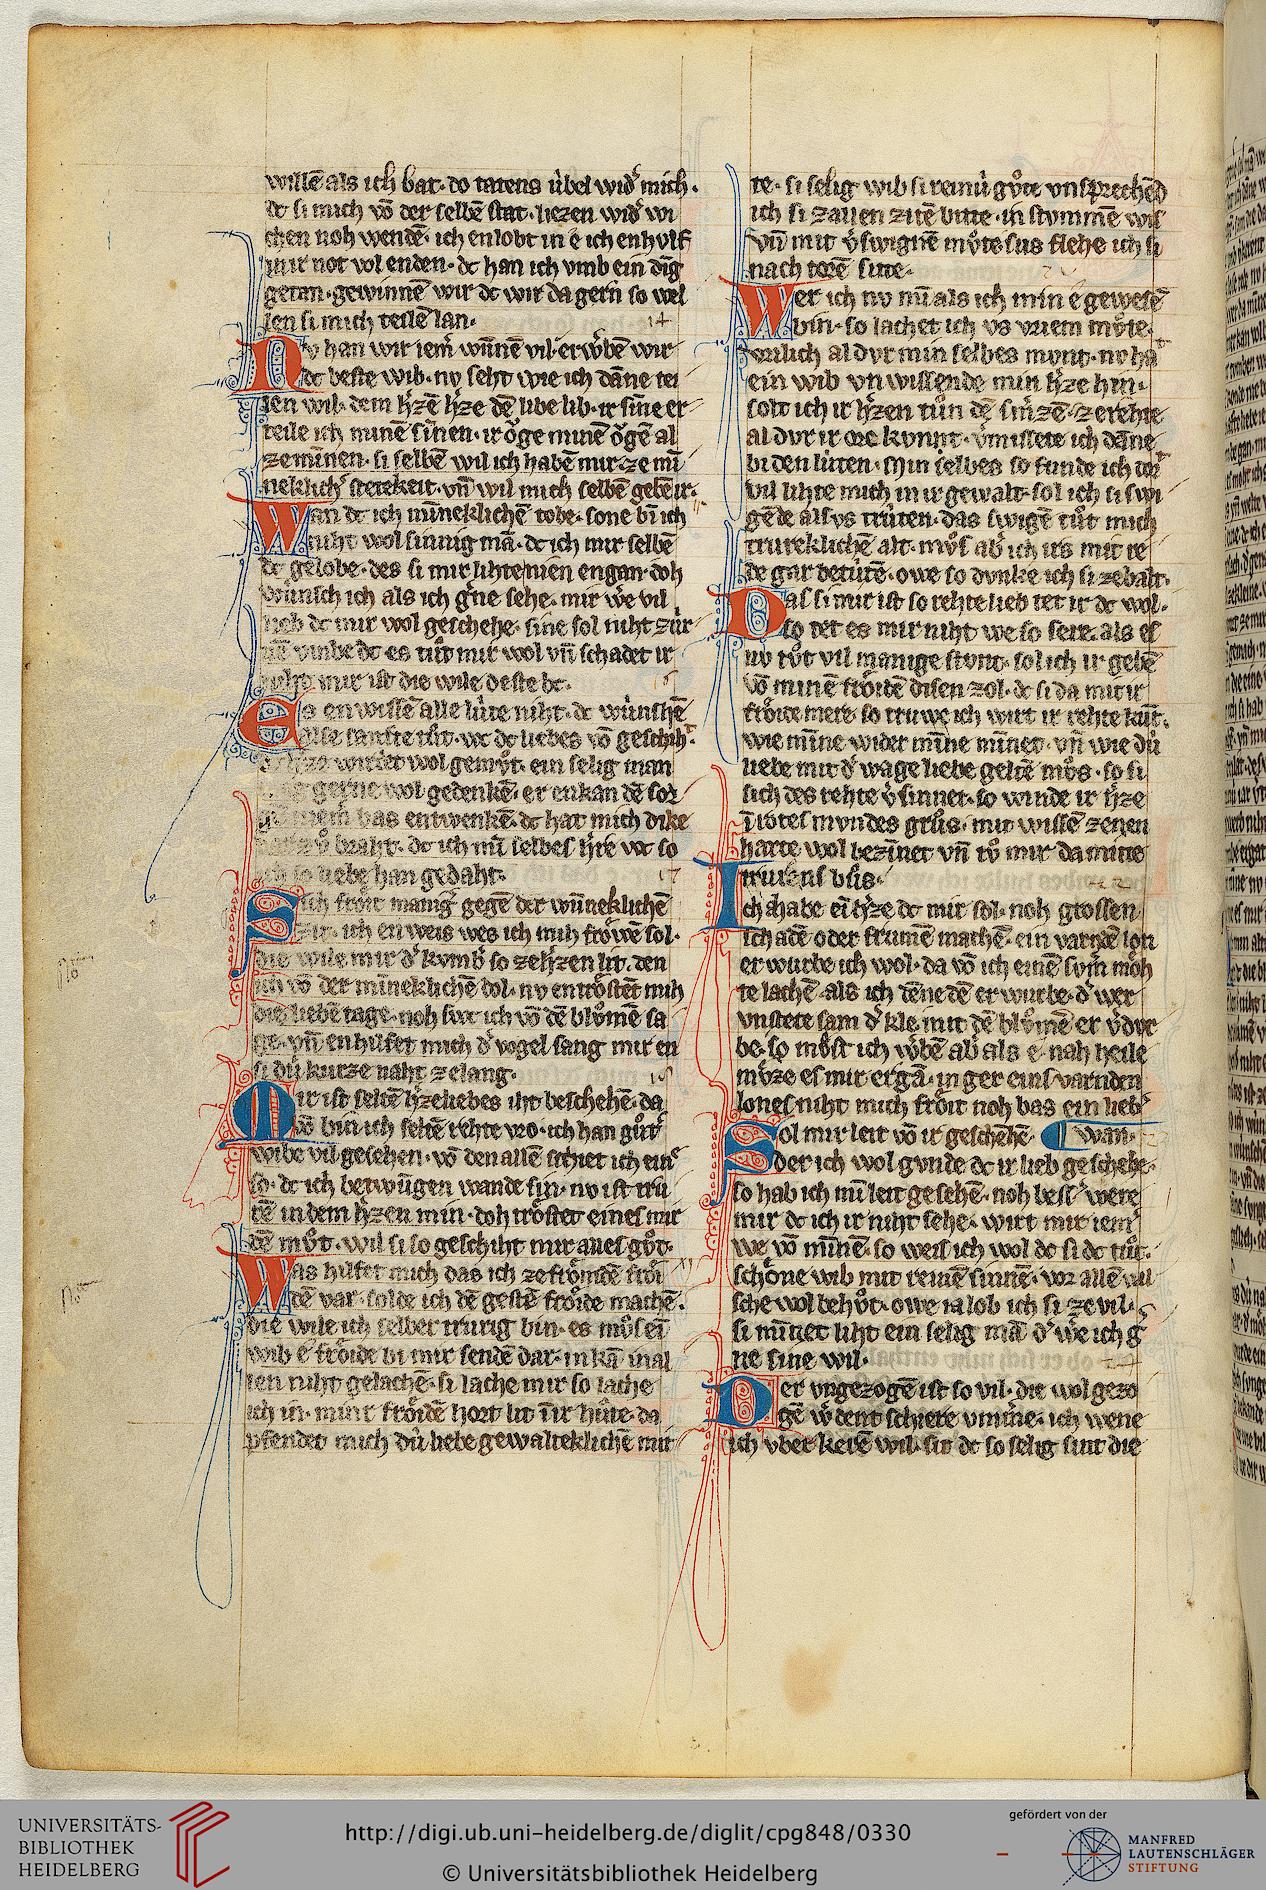 willē als ich bat· do tatens v̇bel wid᷑ mich·
dc si mich vō der selbē stat· liezen wid᷑ wi
chen noh wendē· ich enlobt in e ich enhvlf
mir not vol enden· dc han ich vmb ein dīg
getan· gewinnē wir dc wir da gern so wel
len si mich teilē lan·
Nv han wir iem᷑ wūnē vil· erẘbē wir
dc beste wib· nv seht wie ich dāne tei
len wil· dem h᷑zē h᷑ze dē libe lib· ir sīne er
teile ich minē sīnen· ir ȯge minē ȯgē al
zeminen· si selbē wil ich habē mir ze mī
neklich᷑ stetekeit· vn̄ wil mich selbē gebē ir·
Wan dc ich mīneklichē tobe· sone bī ich
niht wol sinnig mā· dc ich mir selbē
dc gelobe· des si mir lihte nien engan· doh
wu̇nsch ich als ich g᷑ne sehe· mir we vil
lieb dc mir wol geschehe· sine sol niht zu̇r
nē vmbe dc es tůt mir wol vn̄ schadet ir
niht· mir ist die wile deste bc·
Es en wissē alle lu̇te niht· dc wu̇nshē
also sanfte tůt· wc dc liebes vō geschih᷑·
dc h᷑ze wirdet wol gemůt· ein selig man
gerne wol gedenkē· er enkan dē sor
gē niem᷑ bas entwenkē· dc hat mich dike
braht· dc ich mī selbes h᷑re wc so
ich so liebe han gedaht·
Sich frȯit manig᷑ gegē der wūneklichē
zit· ich en weis wes ich mih frȯwē sol·
die wile mir d᷑ kvmb᷑ so zeh᷑zen lit· den
ich vō der mīneklichē dol· nv entrȯstēt mih
die liebē tage· noh swc ich vō dē blůmē sa
ge· vn̄ enhilfet mich d᷑ vogel sang mir en
si du̇ kurze naht zelang·
Mir ist seltē h᷑zeliebes iht beschehē· da
vō bin ich seltē rehte vro· ich han gůt᷑
wibe vil gesehen· vō den allē schiet ich ein᷑
so· dc ich betwūgen wande sin· nv ist trů
rē in dem h᷑zen min· doh trȯstet eines mir
dē můt· wil si so geschiht mir alles gůt·
Was hilfet mich das ich ze frȯmdē frȯi
dē var· solde ich dē gestē frȯide machē·
die wile ich selber trurig bin· es můs ei
wib e frȯide bi mir sendē dar· in kā in al
len niht gelachē· si lache mir so lache
ich in· minr frȯidē hort lit in ir hůte· da
pfendet mich du̇ liebe gewalteklichē mit
te· si selig wib si reinu̇ gůte vnsprechēd
ich si zallen zitē bitte· in stvmmē wis
vn̄ mit v᷑swignē můte sus flehe ich si
nach torē sitte·
Wer ich nv nīr als ich min e gewesē
bin· so lachet ich vs vriem můte·
vrilich al dvr min selbes mvnt· nv hat
ein wib vn wissende min h᷑ze hin·
solt ich ir h᷑zen tůn dē smzē· zerehte
al dvr ir ore kvnnt· v᷑misset ich dāne
bi den lu̇ten· min selbes so funde ich tor
vil lihte mich in ir gewalt· sol ich si swi
gēde als vs tru̇ten· das swigē tůt mich
trureklichē alt· můs ab᷑ ich irs mit re
de gar betu̇tē· owe so dvnke ich si zebalt·
Das si mir ist so rehte lieb tet ir dc wol·
so tet es mir niht we so sere· als es
nv tůt vil manige stvnt· sol ich ir gebē
vō minē frȯidē disen zol· dc si da mit ir
frȯide mere· so truwe ich wirt ir rehte kūt·
wie mīne wider mīne mīnet· vn̄ wie du̇
liebe mit d᷑ wage liebe geltē můs· so si
sich des rehte v᷑sinnet· so winde ir h᷑ze
ī rotes mvndes grůs· mir wissē zenen
harte wol bezīnet vn̄ tů mir da mitte
trurens bůs·
Ich habe eī h᷑ze dc mir sol· noh grossen
schadē oder frumē machē· ein varndē lon
er wurbe ich wol· da vō ich einē svm᷑ moh
te lachē· als ich dēne dē erwurbe· d᷑ wer
vnstete sam d᷑ kle mit dē blůmē er v᷑dvr
be· so můst ich w᷑bē ab als e· nah heile
můze es mir ergā· in ger eins varnden
lones niht mich frȯit noh bas ein lieb᷑
Sol mir leit vō ir geschehē· wan·
der ich wol gvnde dc ir lieb geschehe·
so hab ich mī leit gesehē· noh bess᷑ were
mir dc ich ir niht sehe· wirt mir iem᷑
we vō mīnē· so weis ich wol dc si dc tůt·
schȯne wib mit reinē sinnē· vor allē val
sche wol behůt· owe ia lob ich si ze vil·
si mīnet liht ein selig mā d᷑ we ich g᷑
ne sine wil·
Der vngezogē ist so vil· die wol gezo
gē w᷑dent schiere vnm᷑e· ich wene
ich vber kerē wil· sit dc so selig sint die
UNIVERSITÄTS-
BIBLIOTHEK
HEIDELBERG
http://digi.ub.uni-heidelberg.de/diglit/cpg848/0330
© Universitätsbibliothek Heidelberg
gefördert von der
MANFRED
LAUTENSCHLÄGER
STIFTUNG